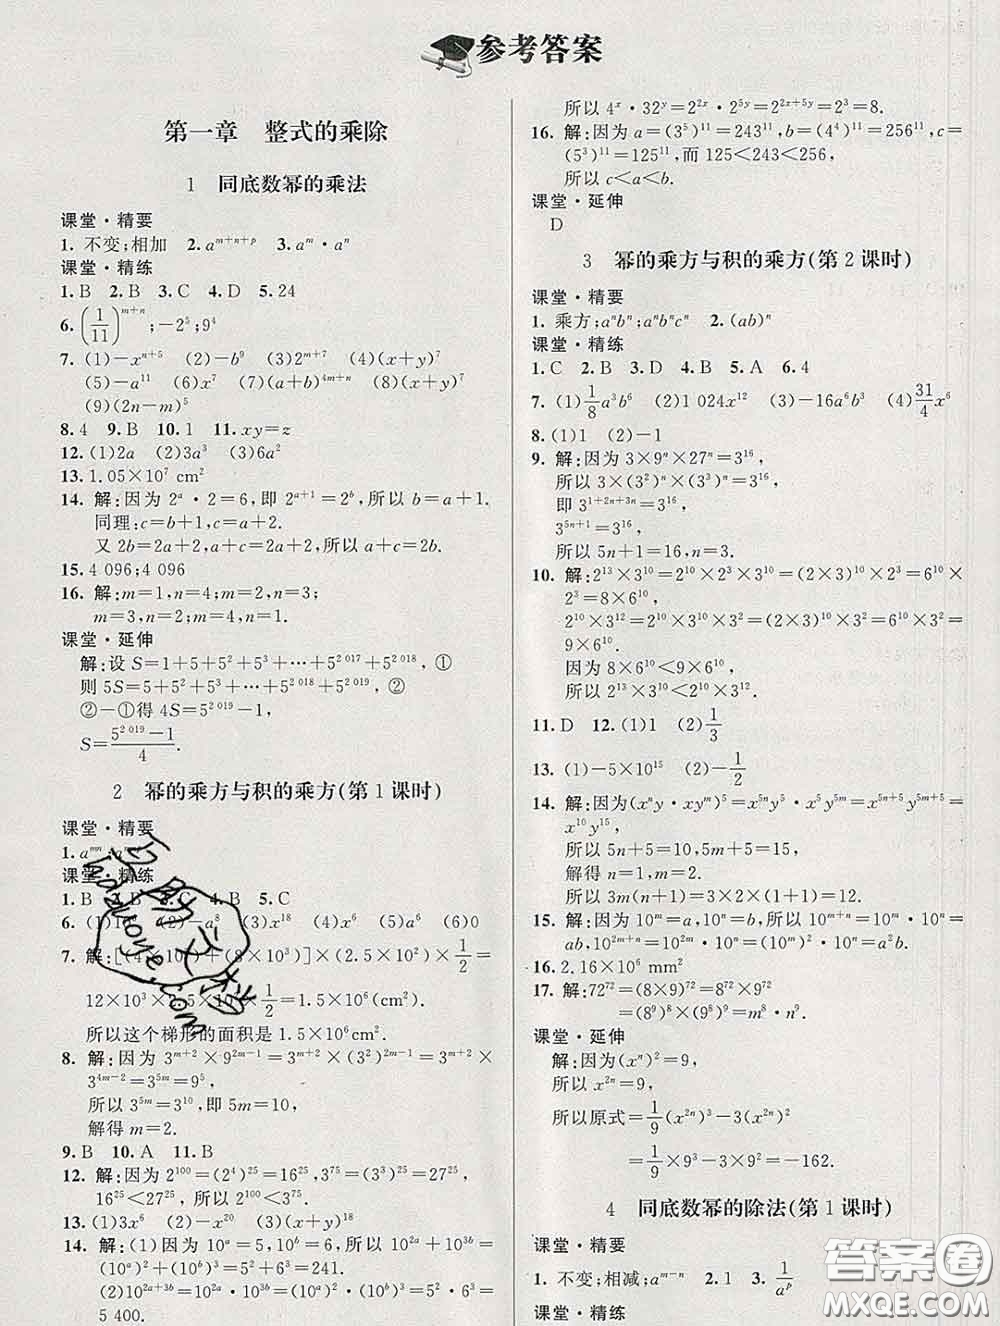 参考答案
第一章 整式的乘除
1 同底数幂的乘法
课堂·精要
1. 不变;相加 2. a^{m+n+p} 3. a^m·a^n
课堂·精练
1. B 2. B 3. C 4. D 5. 24
6. (1/11)^{m+n};-2^5;9^4
7. (1)-x^{n+5} (2)-b^9 (3)2^{m+7} (4)(x+y)^7
(5)-a^{11} (6)x^7 (7)(a+b)^{4m+n} (8)(x+y)^7
(9)(2n-m)^5
8. 4 9. B 10. 1 11. xy=z
12. (1)2a (2)3a^3 (3)6a^2
13. 1.05×10^7 cm^2
14. 解:因为 2^a·2=6,即 2^{a+1}=2^b,所以 b=a+1.
同理:c=b+1,c=a+2.
又 2b=2a+2,a+c=2a+2,所以 a+c=2b.
15. 4 096;4 096
16. 解:m=1,n=4;m=2,n=3;
m=3,n=2;m=4,n=1.
课堂·延伸
解:设 S=1+5+5^2+5^3+…+5^{2 017}+5^{2 018},①
则 5S=5+5^2+5^3+…+5^{2 018}+5^{2 019},②
②-①得 4S=5^{2 019}-1,
S=(5^{2 019}-1)/4.
2 幂的乘方与积的乘方(第 1 课时)
课堂·精要
1. a^{mn}
课堂·精练
1. B 3. C 4. B 5. C
6. -a^8 (3)x^{18} (4)x^6 (5)a^6 (6)0
7. 解:+(8×10^3)]×(2.5×10^2)×1/2=
12×10^3×2.5×10^2×1/2=1.5×10^6(cm^2).
所以这个梯形的面积是 1.5×10^6cm^2.
8. 解:因为 3^{m+2}×9^{2m-1}=3^{m+2}×(3^2)^{2m-1}=3^{m+2}×
3^{4m-2}=3^{5m}=9^5,
所以 3^{5m}=3^{10},即 5m=10,
解得 m=2.
9. B 10. A 11. B
12. 解:因为 2^{100}=(2^4)^{25}=16^{25},3^{75}=(3^3)^{25}=27^{25},
16^{25}<27^{25},所以 2^{100}<3^{75}.
13. (1)3x^6 (2)-x^{20} (3)(x+y)^{18}
14. 解:(1)因为 10^a=5,10^b=6,所以 10^{2a}+10^{3b}=
(10^a)^2+(10^b)^3=5^2+6^3=241.
(2)10^{2a+3b}=10^{2a}·10^{3b}=(10^a)^2·(10^b)^3=5^2×6^3=
5 400.
所以 4^x·32^y=2^{2x}·2^{5y}=2^{2x+5y}=2^3=8.
16. 解:因为 a=(3^5)^{11}=243^{11},b=(4^4)^{11}=256^{11},c=
(5^3)^{11}=125^{11},而 125<243<256,
所以 c<a<b.
课堂·延伸
D
3 幂的乘方与积的乘方(第 2 课时)
课堂·精要
1. 乘方;a^nb^n;a^nb^nc^n 2. (ab)^n
课堂·精练
1. C 2. B 3. D 4. B 5. A 6. 4
7. (1)1/8 a^3b^6 (2)1 024x^{12} (3)-16a^6b^3 (4)31/4 x^6
8. (1)1 (2)-1
9. 解:因为 3×9^n×27^n=3^{16},
所以 3×(3^2)^n×(3^3)^n=3^{16},
即 3^{1+2n+3n}=3^{16},
3^{5n+1}=3^{16},
所以 5n+1=16,n=3.
10. 解:2^{13}×3^{10}=2^{10}×2^3×3^{10}=(2×3)^{10}×2^3=6^{10}×
2^3=8×6^{10},
2^{10}×3^{12}=2^{10}×3^{10}×3^2=(2×3)^{10}×3^2=6^{10}×3^2=
9×6^{10}.
因为 8×6^{10}<9×6^{10},
所以 2^{13}×3^{10}<2^{10}×3^{12}.
11. D 12. (1)1 (2)1/3
13. (1)-5×10^{15} (2)-1/2
14. 解:因为(x^ny·xy^m)^5=x^{5n}y^5·x^5y^{5m}=x^{5n+5}y^{5m+5}=
x^{10}y^{15},
所以 5n+5=10,5m+5=15,
解得 n=1,m=2.
所以 3m(n+1)=3×2×(1+1)=12.
15. 解:因为 10^m=a,10^n=b,所以 10^{m+n}=10^m·10^n=
ab,10^{2m+n}=10^{2m}·10^n=(10^m)^2·10^n=a^2b.
16. 2.16×10^6 mm^2
17. 解:72^{72}=(8×9)^{72}=8^{72}×9^{72}
=(8^9)^8×(9^8)^9=m^8·n^9.
课堂·延伸
解:因为(x^n)^2=9,
所以 x^{2n}=9,
所以原式=1/9(x^{2n})^3-3(x^{2n})^2
=1/9×9^3-3×9^2=-162.
4 同底数幂的除法(第 1 课时)
课堂·精要
1. 不变;相减;a^{m-n} 2. 1 3. 1/a^p
课堂·精练
答案圈
MXQE.COM